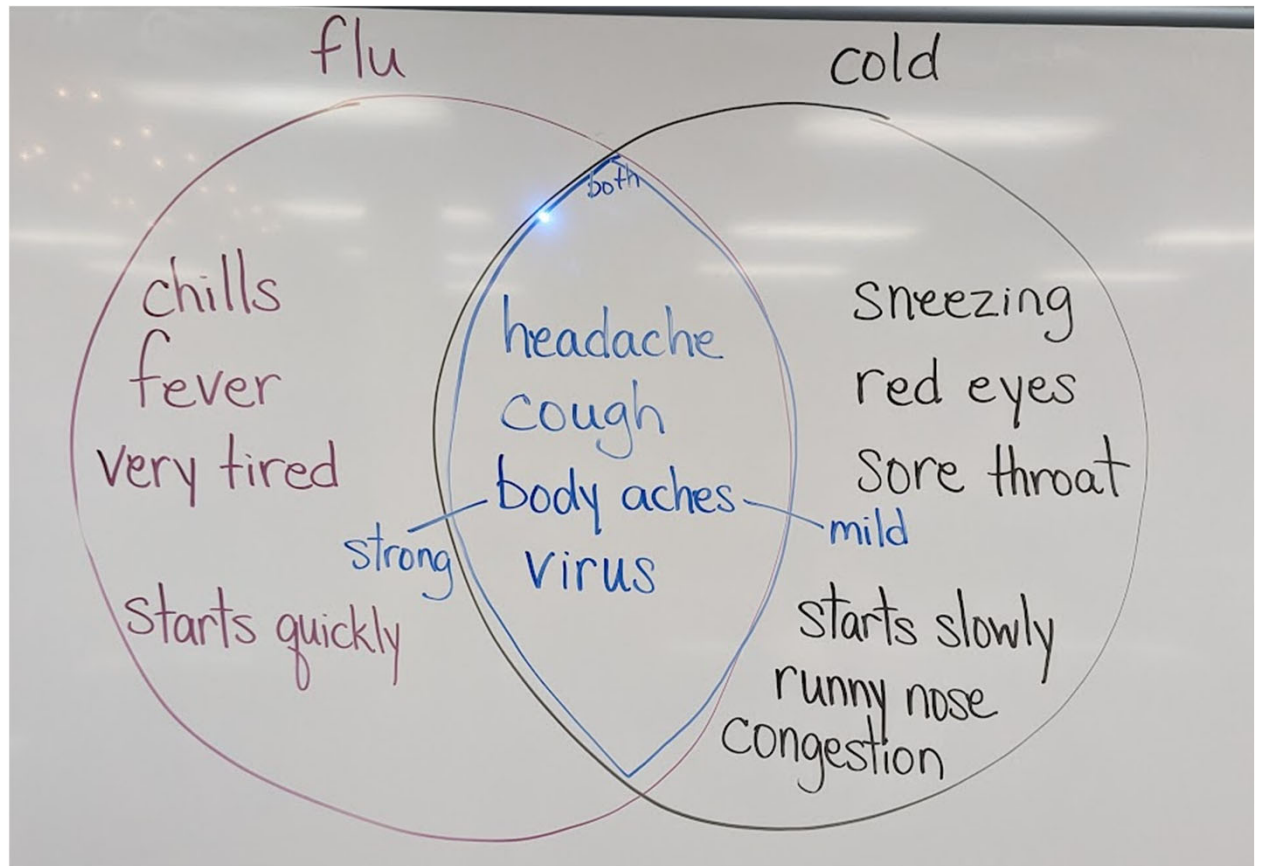 flu
cold
both
chills
fever
very tired
starts quickly
headache
cough
body aches
virus
strong
mild
sneezing
red eyes
sore throat
starts slowly
runny nose
congestion